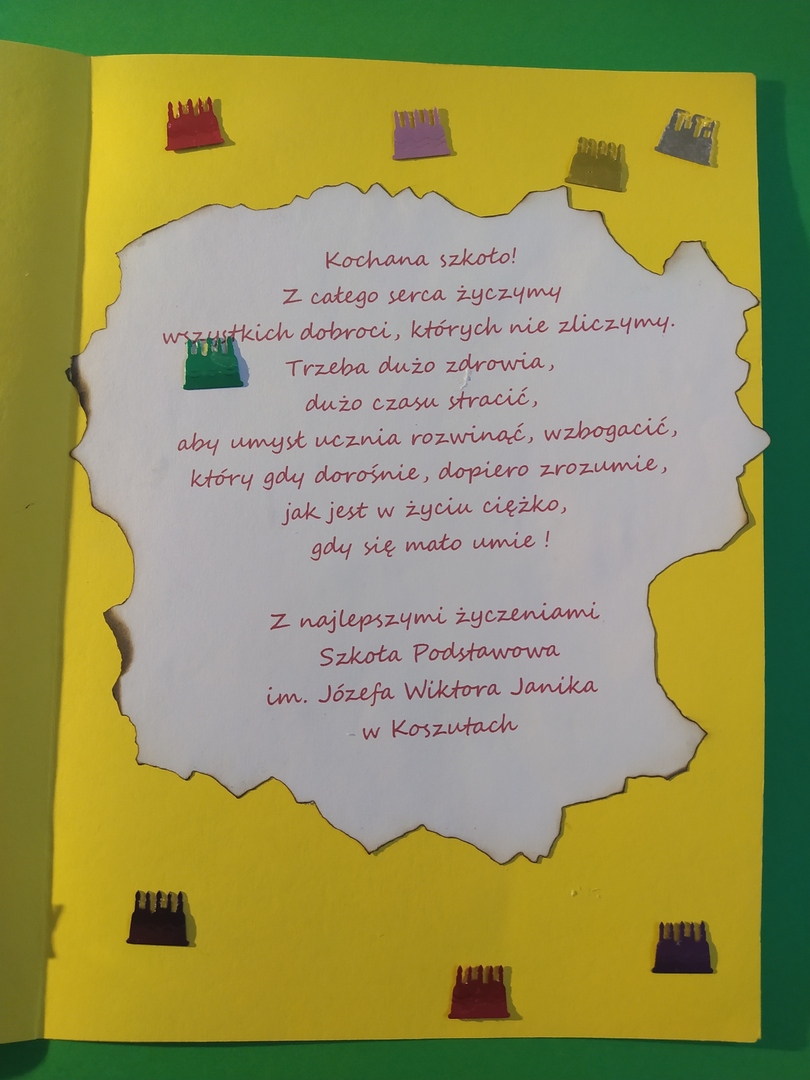 Kochana szkoło!
Z całego serca życzymy
wszystkich dobroci, których nie zliczymy.
Trzeba dużo zdrowia,
dużo czasu stracić,
aby umysł ucznia rozwinąć, wzbogacić,
który gdy dorośnie, dopiero zrozumie,
jak jest w życiu ciężko,
gdy się mało umie !
Z najlepszymi życzeniami
Szkoła Podstawowa
im. Józefa Wiktora Janika
w Koszutach